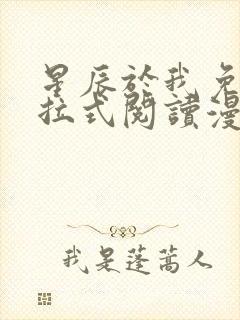 星辰於我免
拉式閱讀漫
我是蓬蒿人